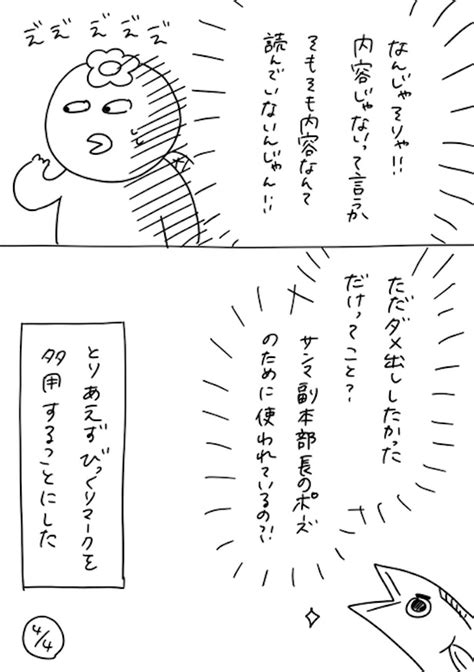 なんじゃそりゃ!!
内容じゃないって言うか
そもそも内容なんて
読んでいないんじゃん!!
ぞぞぞぞぞ
ただダメ出ししたかった
だけってこと?
サンマ副本部長のポーズ
のために使われているの?!
とりあえずびっくりマークを
多用することにした
4/4